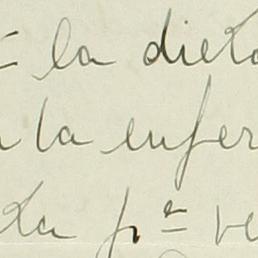 = la dieta
la enfer
ta pª ve